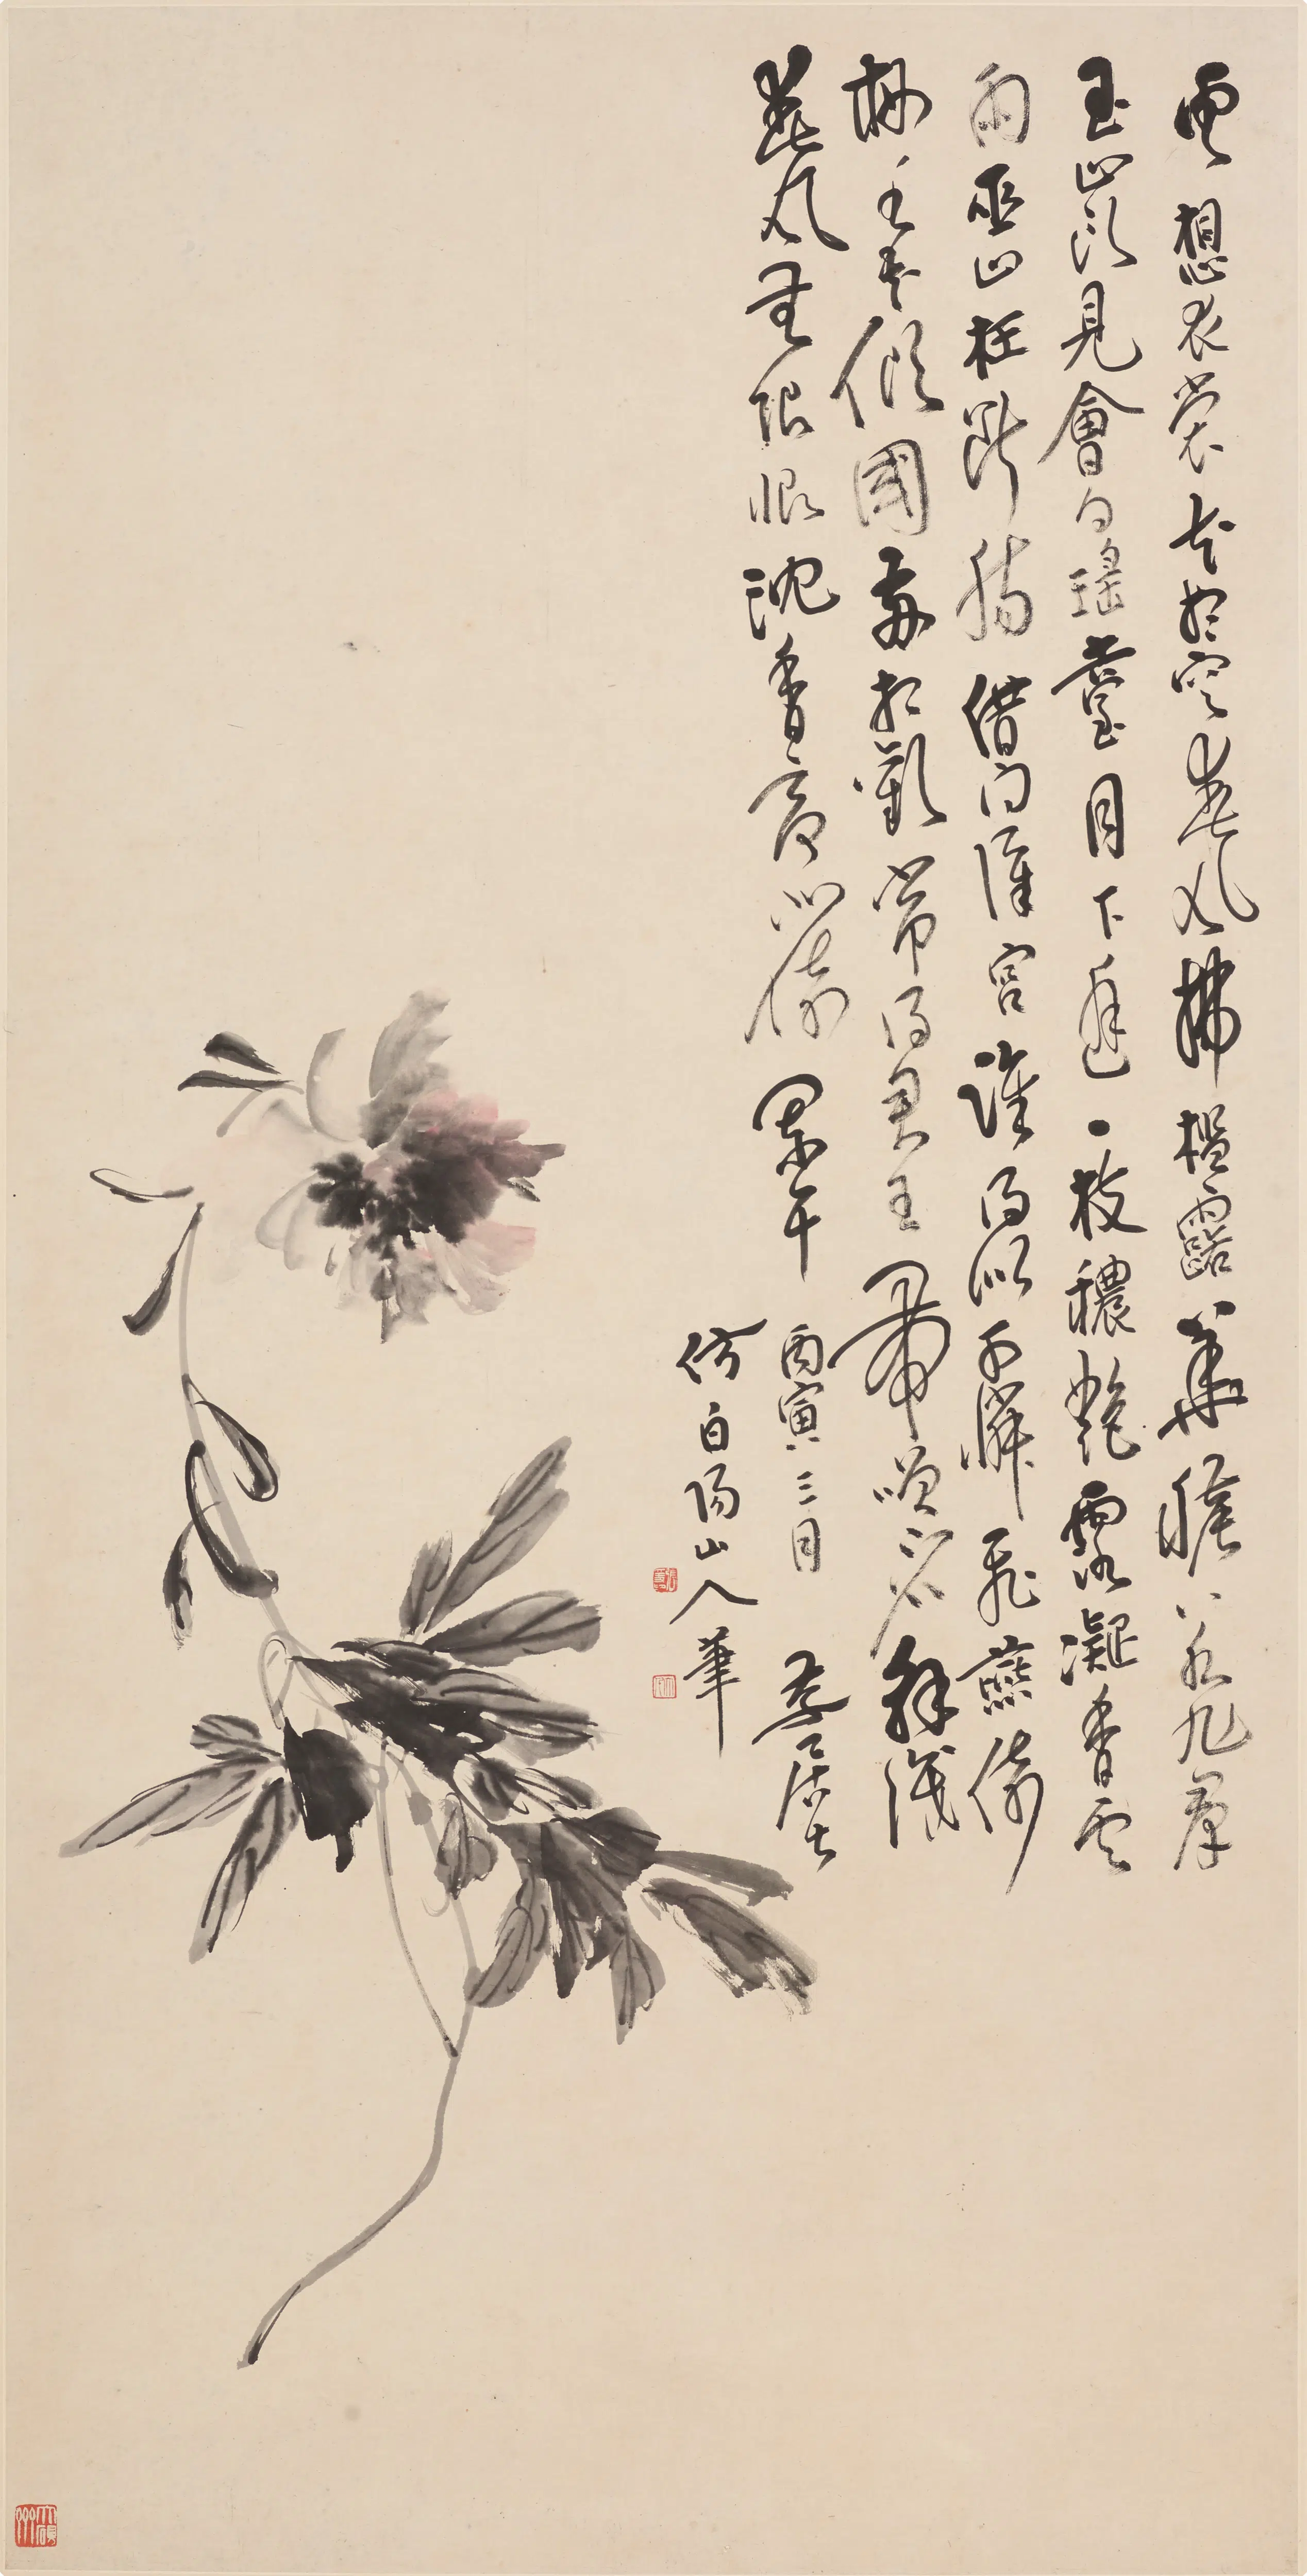 雲想衣裳花想容春風拂檻露華穠若非群
玉山頭見會向瑤臺月下逢一枝穠艷露凝香雲
雨巫山枉斷腸借問漢宮誰得似可憐飛燕倚
新粧名花傾國兩相歡常得君王帶笑看解識
春風無限恨沈香亭北倚闌干
丙寅三月 居士
仿白陽山人筆